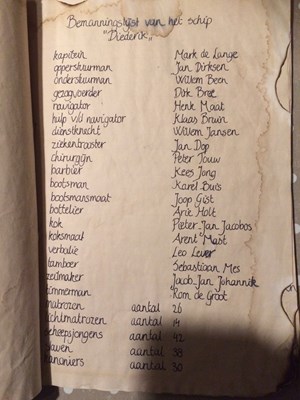 Bemanningslijst van het schip
"Diederik"
kapitein Mark de Lange
opperstuurman Jan Dirksen
onderstuurman Willem Been
gezagvoerder Dirk Bree
navigator Henk Maat
hulp v/d navigator Klaas Bruin
dienstknecht Willem Jansen
ziekentrooster Jan Dop
chirurgijn Peter Jouw
barbier Kees Jong
bootsman Karel Buis
bootsmansmaat Joop Gist
bottelier Arie Holt
kok Pieter Jan Jacobos
koksmaat Arent Mast
Leo Lever
tamboer Sebastiaan Mes
zeilmaker Jacob Jan Johannik
timmerman Kom de Groot
matrozen aantal 26
lichtmatrozen aantal 14
scheepsjongens aantal 42
slaven aantal 38
kanoniers aantal 30